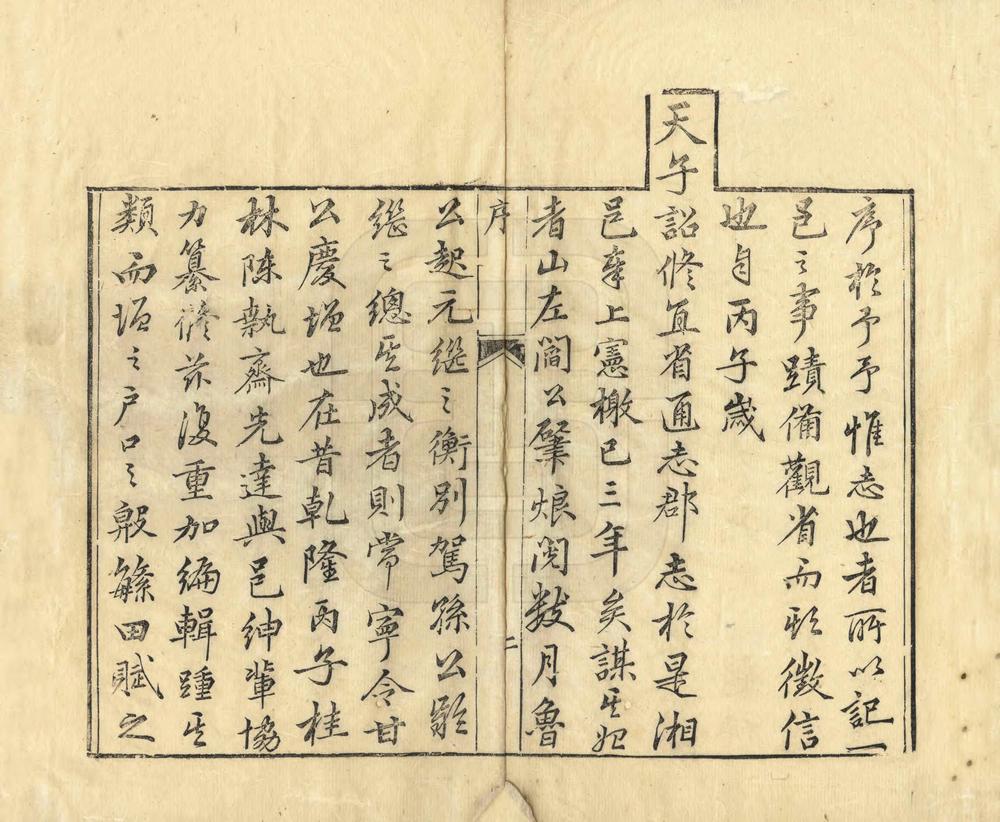 序於予予惟志也者所以記一
邑之事蹟備觀省而彰徵信
也自丙子歲
天子
詔修直省通志郡志於是湘
邑奉上憲檄已三年矣謀其始
者山左閻公肇烺閱數月魯
序
二
公起元繼之衡別駕孫公
繼之總其成者則常寧令甘
公慶增也在昔乾隆丙子桂
林陳執齋先達與邑紳輩協
力纂修茲復重加編輯踵其
類而增之戶口之殷繇田賦之